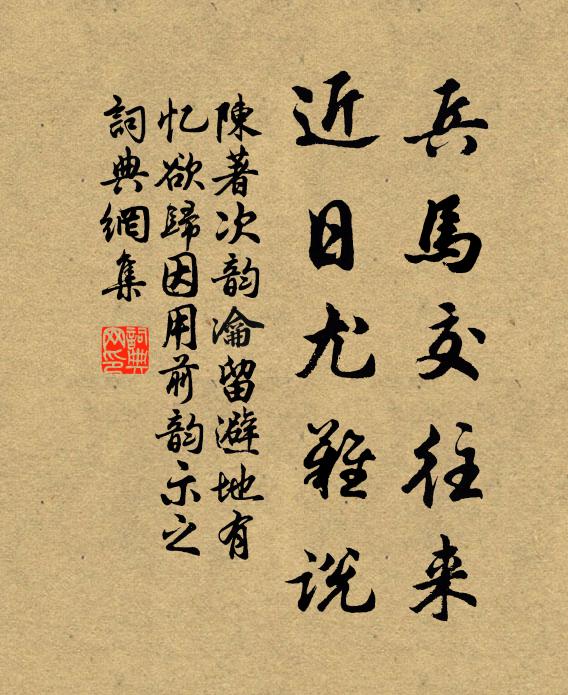 兵馬交往来
近日尤難説
陳著次韵瀹留避地有
忆欲歸因用前韵示之
詞典網集
詞典网印